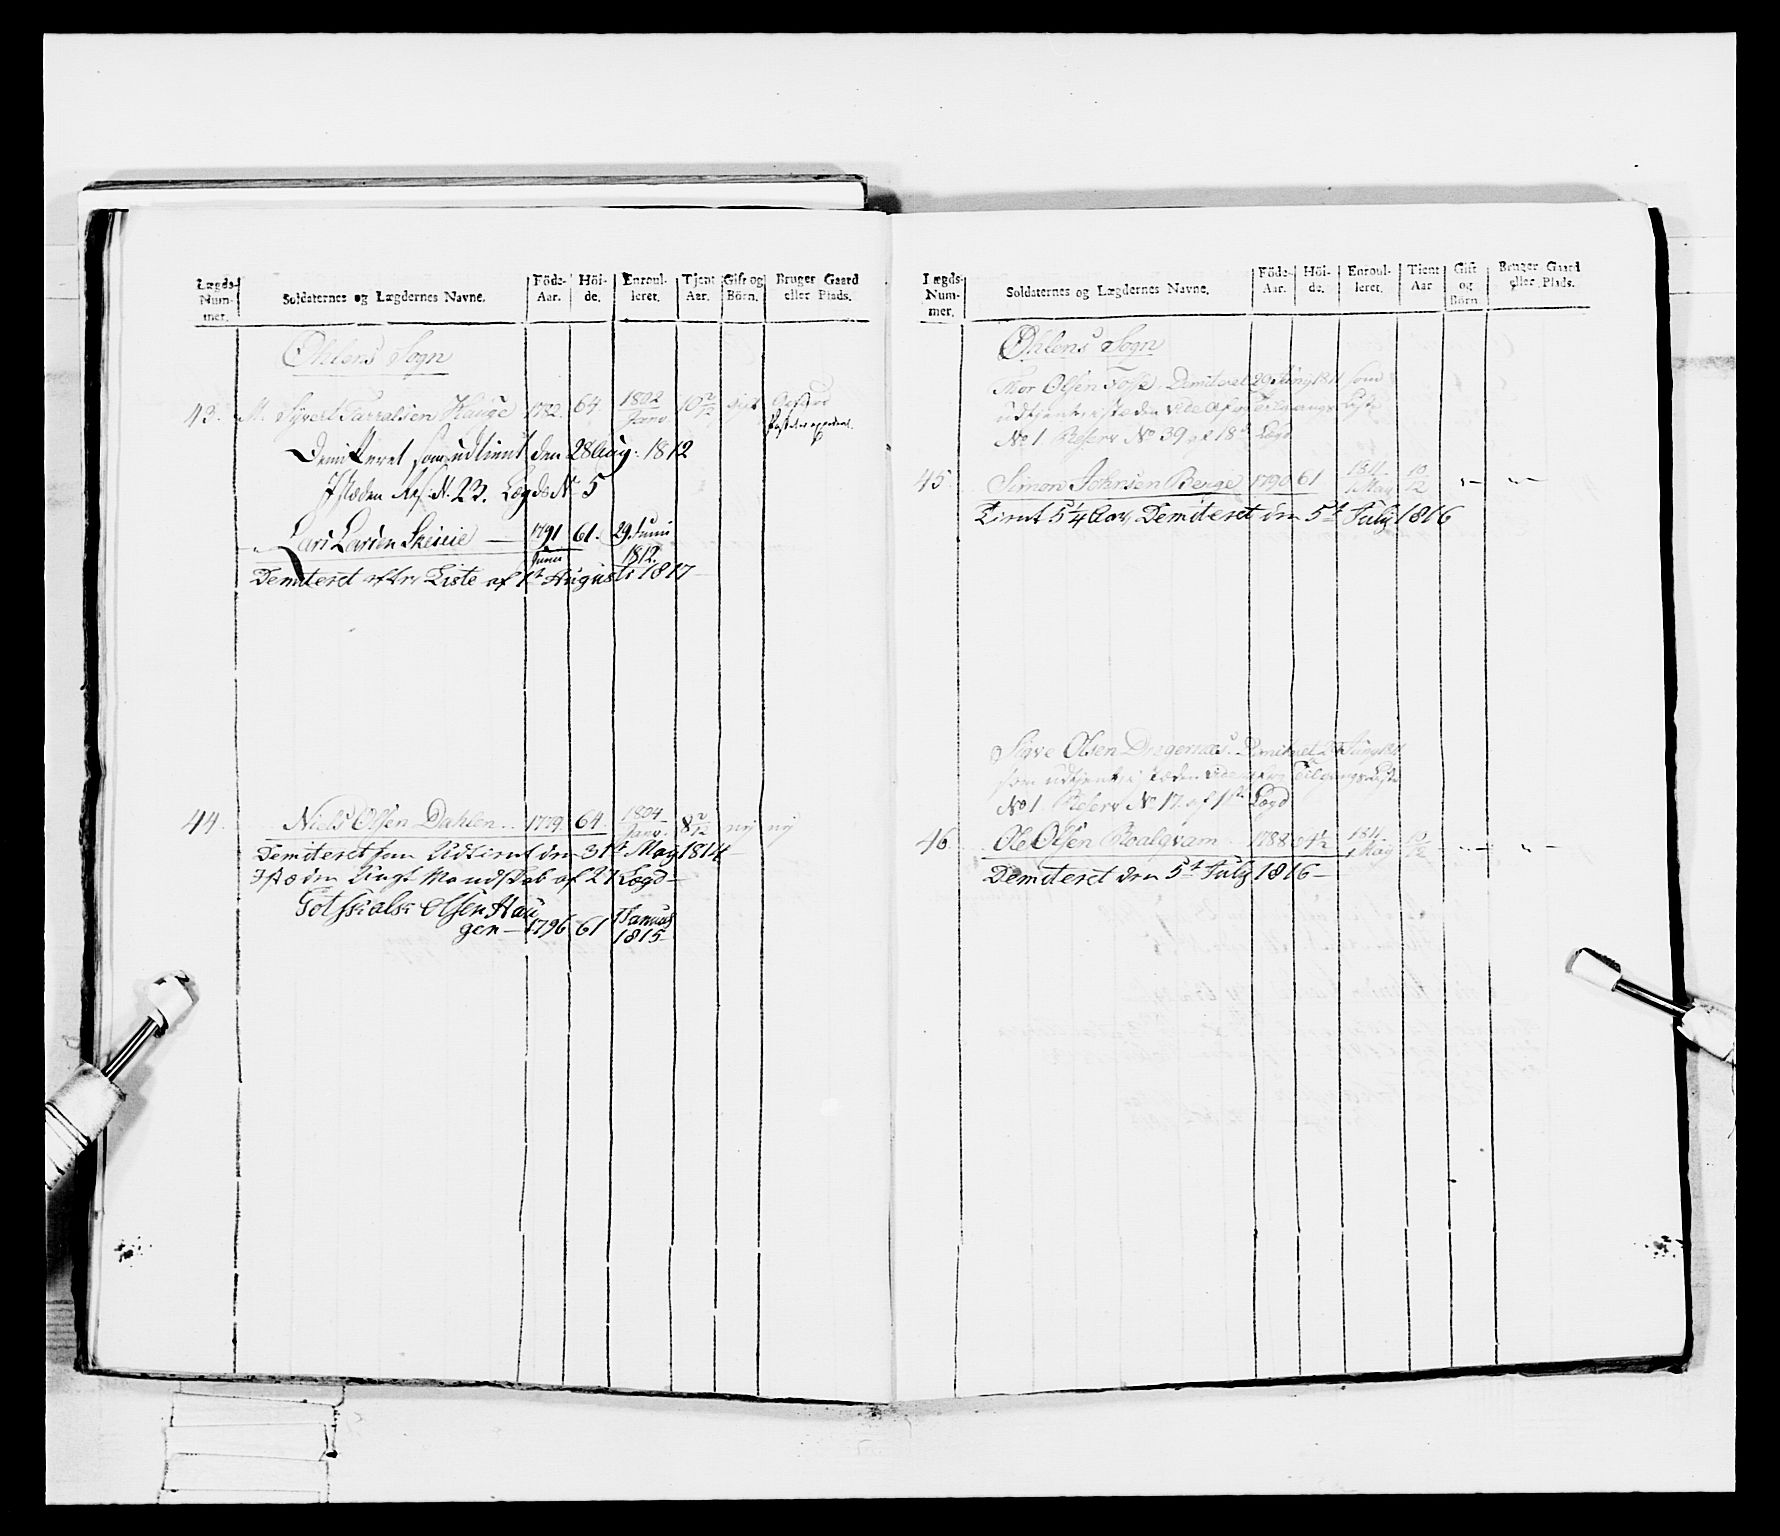 Lægds-Num-mer. Soldaternes og Lægdernes Navne. Föde-Aar. Höi-de. Enroul-leret. Tjent Aar. Gift og Börn. Bruger Gaard eller Plads.
Øhlens Sogn
43. M. Syvert Tarralsen Hauge 1782. 64. 1802 Janv 10 2/12 gift
Demitteret som udtient den 28 Aug: 1812
Istæden Res: N. 23. Lægd N 5
Lars Larsen Skeiie — 1791 61. 29. Junii 1812.
Demiteret efter Liste af 1t Augusti 1817
44. Niels Olsen Dahlen 1779. 64. 1804 Janv. 8 2/12 nij nij
Demiteret som Udtient den 31t May 1814
Istæden Ungt Mandskab af 27 Lægd —
Gotskalk Olsen Hau
gen — 1796 61 Januar 1815
Lægds-Num-mer. Soldaternes og Lægdernes Navne. Föde-Aar. Höi-de. Enroul-leret. Tient Aar Gift og Börn Bruger Gaard eller Plads.
Øhlens Sogn
Thor Olsen Tose Demiteret 29 Junij 1811 som
udtient istæden vide Afr Tilgangs Liste
No 1 Reserv No 39 af 18d Lægd
45 Simon Johnsen Berge 1790 61 1811 1 May 10/12 "— "—
Tient 5 1/4 Aar, Demiteret den 5t July 1816
Sive Olsen Dragernæs. Demiteret Junij 1811
som udtient istæden vide Tilgangs Liste
No 1 Reserv No 17 af 11te Lægd
46 Ole Olsen Roalqvam 1788 64 1/2 1811 1 May 10/12 "— "—
Demiteret den 5t July 1816 —